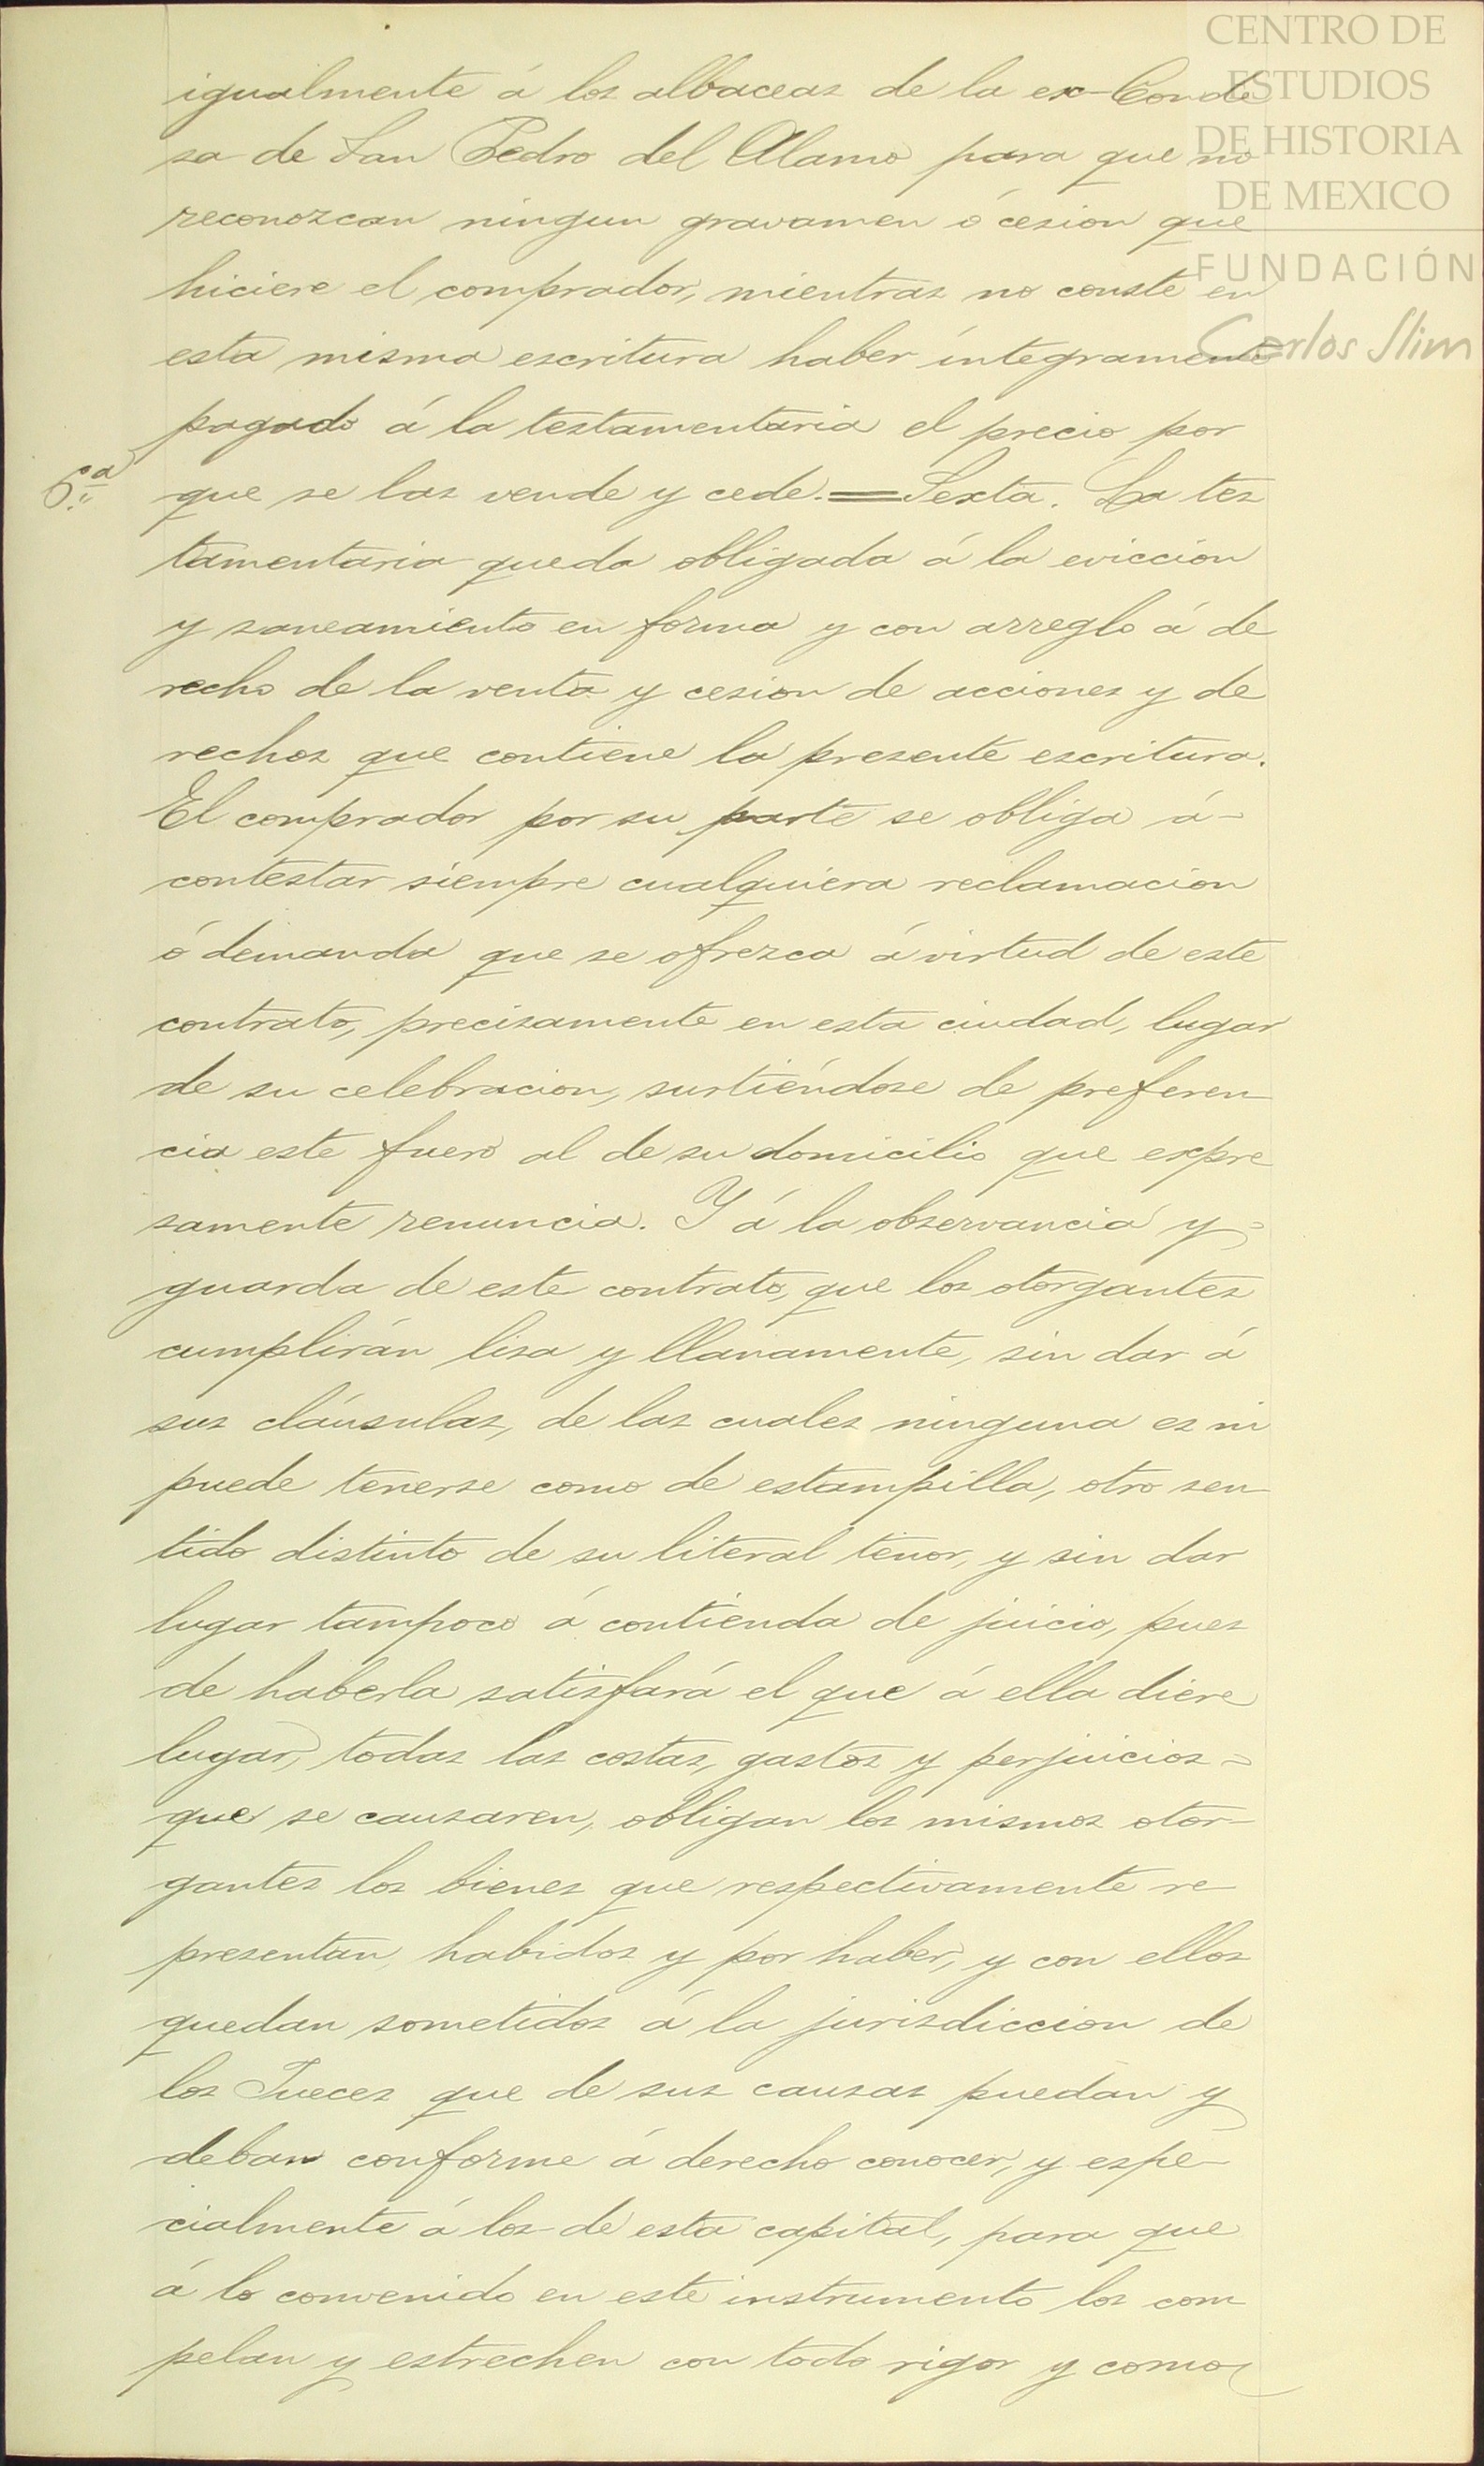 CENTRO DE
ESTUDIOS
DE HISTORIA
DE MEXICO
FUNDACIÓN
Carlos Slim
igualmente á los albaceas de la ex-Conde
sa de San Pedro del Alamo para que no
reconozcan ningun gravamen ó cesion que
hiciere el comprador, mientras no conste en
esta misma escritura haber íntegramente
pagado á la testamentaria el precio por
6.ª
que se las vende y cede.=Sexta. La tes
tamentaria queda obligada á la eviccion
y saneamiento en forma y con arreglo á de
recho de la venta y cesion de acciones y de
rechos que contiene la presente escritura.
El comprador por su parte se obliga á-
contestar siempre cualquiera reclamacion
ó demanda que se ofrezca á virtud de este
contrato, precisamente en esta ciudad, lugar
de su celebracion, surtiéndose de preferen
cia este fuero al de su domicilio que expre
samente renuncia. Y á la observancia y=
guarda de este contrato, que los otorgantes
cumplirán lisa y llanamente, sin dar á
sus cláusulas, de las cuales ninguna es ni
puede tenerse como de estampilla, otro sen
tido distinto de su literal tenor, y sin dar
lugar tampoco á contienda de juicio, pues
de haberla satisfará el que á ella diere
lugar, todas las costas, gastos y perjuicios=
que se causaren, obligan los mismos otor-
gantes los bienes que respectivamente re
presentan, habidos y por haber, y con ellos
quedan sometidos á la jurisdiccion de
los Jueces que de sus causas puedan y
deban conforme á derecho conocer, y espe-
cialmente á los de esta capital, para que
á lo convenido en este instrumento los com
pelan y estrechen con todo rigor y como